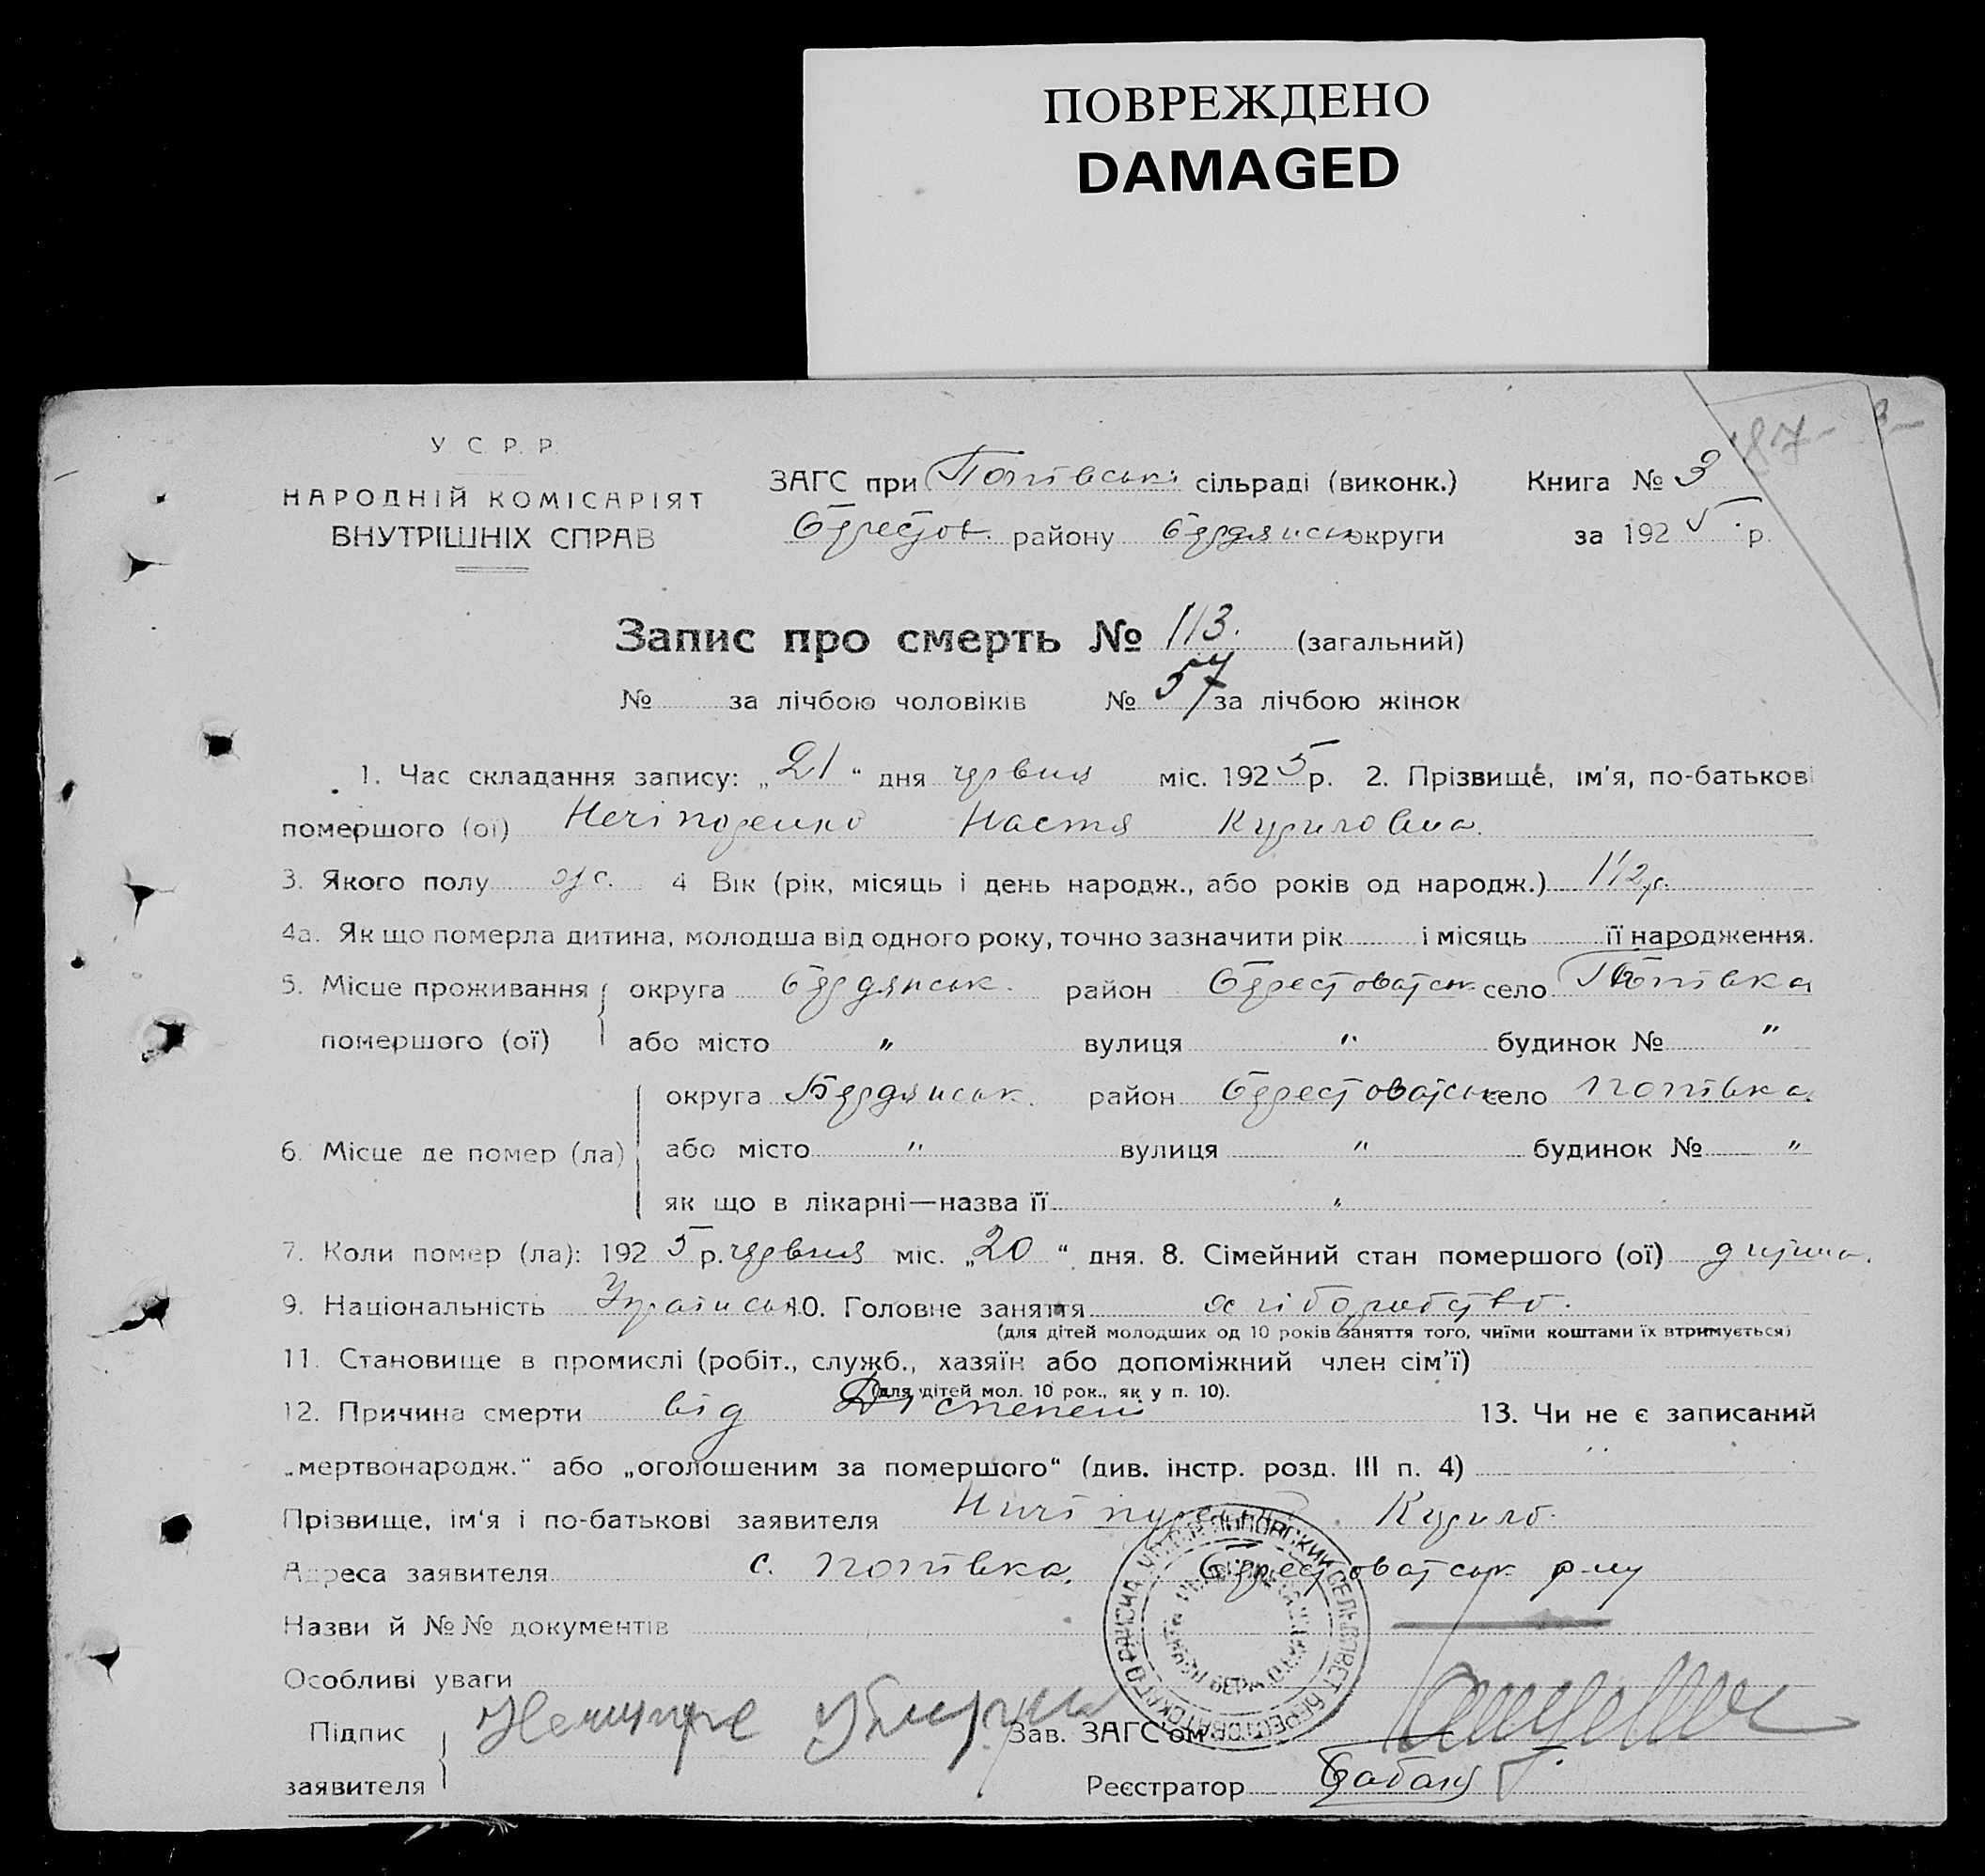 ПОВРЕЖДЕНО
DAMAGED
87-
У. С. Р. Р.
НАРОДНІЙ КОМІСАРІЯТ
ВНУТРІШНІХ СПРАВ
ЗАГС при Попівські сільраді (виконк.) Книга № 3
Берестов. району Бердянськ округи за 1925 р.
Запис про смерть № 113. (загальний)
№ за лічбою чоловіків № 57 за лічбою жінок
1. Час складання запису: „21“ дня червня міс. 1925 р. 2. Прізвище, ім'я, по-батькові
помершого (ої) Нечіпоренко Настя Кириловна.
3. Якого полу ж. 4 Вік (рік, місяць і день народж., або років од народж.) 1 1/2 р.
4а. Як що померла дитина, молодша від одного року, точно зазначити рік і місяць її народження.
5. Місце проживання округа Бердянськ. район Берестоватськ село Попівка
помершого (ої) або місто " вулиця " будинок № "
округа Бердянськ. район Берестоватськ село Попівка
6. Місце де помер (ла) або місто " вулиця " будинок № "
як що в лікарні—назва її "
7. Коли помер (ла): 1925 р. червня міс. „20“ дня. 8. Сімейний стан помершого (ої) дитина.
9. Національність Українськ 10. Головне заняття хліборобство.
(для дітей молодших од 10 років заняття того, чиїми коштами їх втримується)
11. Становище в промислі (робіт., служб., хазяїн або допоміжний член сім'ї)
(для дітей мол. 10 рок., як у п. 10).
12. Причина смерти від 13. Чи не є записаний
„мертвонародж.“ або „оголошеним за помершого“ (див. інстр. розд. III п. 4) "
Прізвище, ім'я і по-батькові заявителя Кирило.
Адреса заявителя с. Попівка, Берестоватськ р-ну
Назви й №№ документів
Особливі уваги
Підпис
заявителя
Зав. ЗАГС'ом
Реєстратор